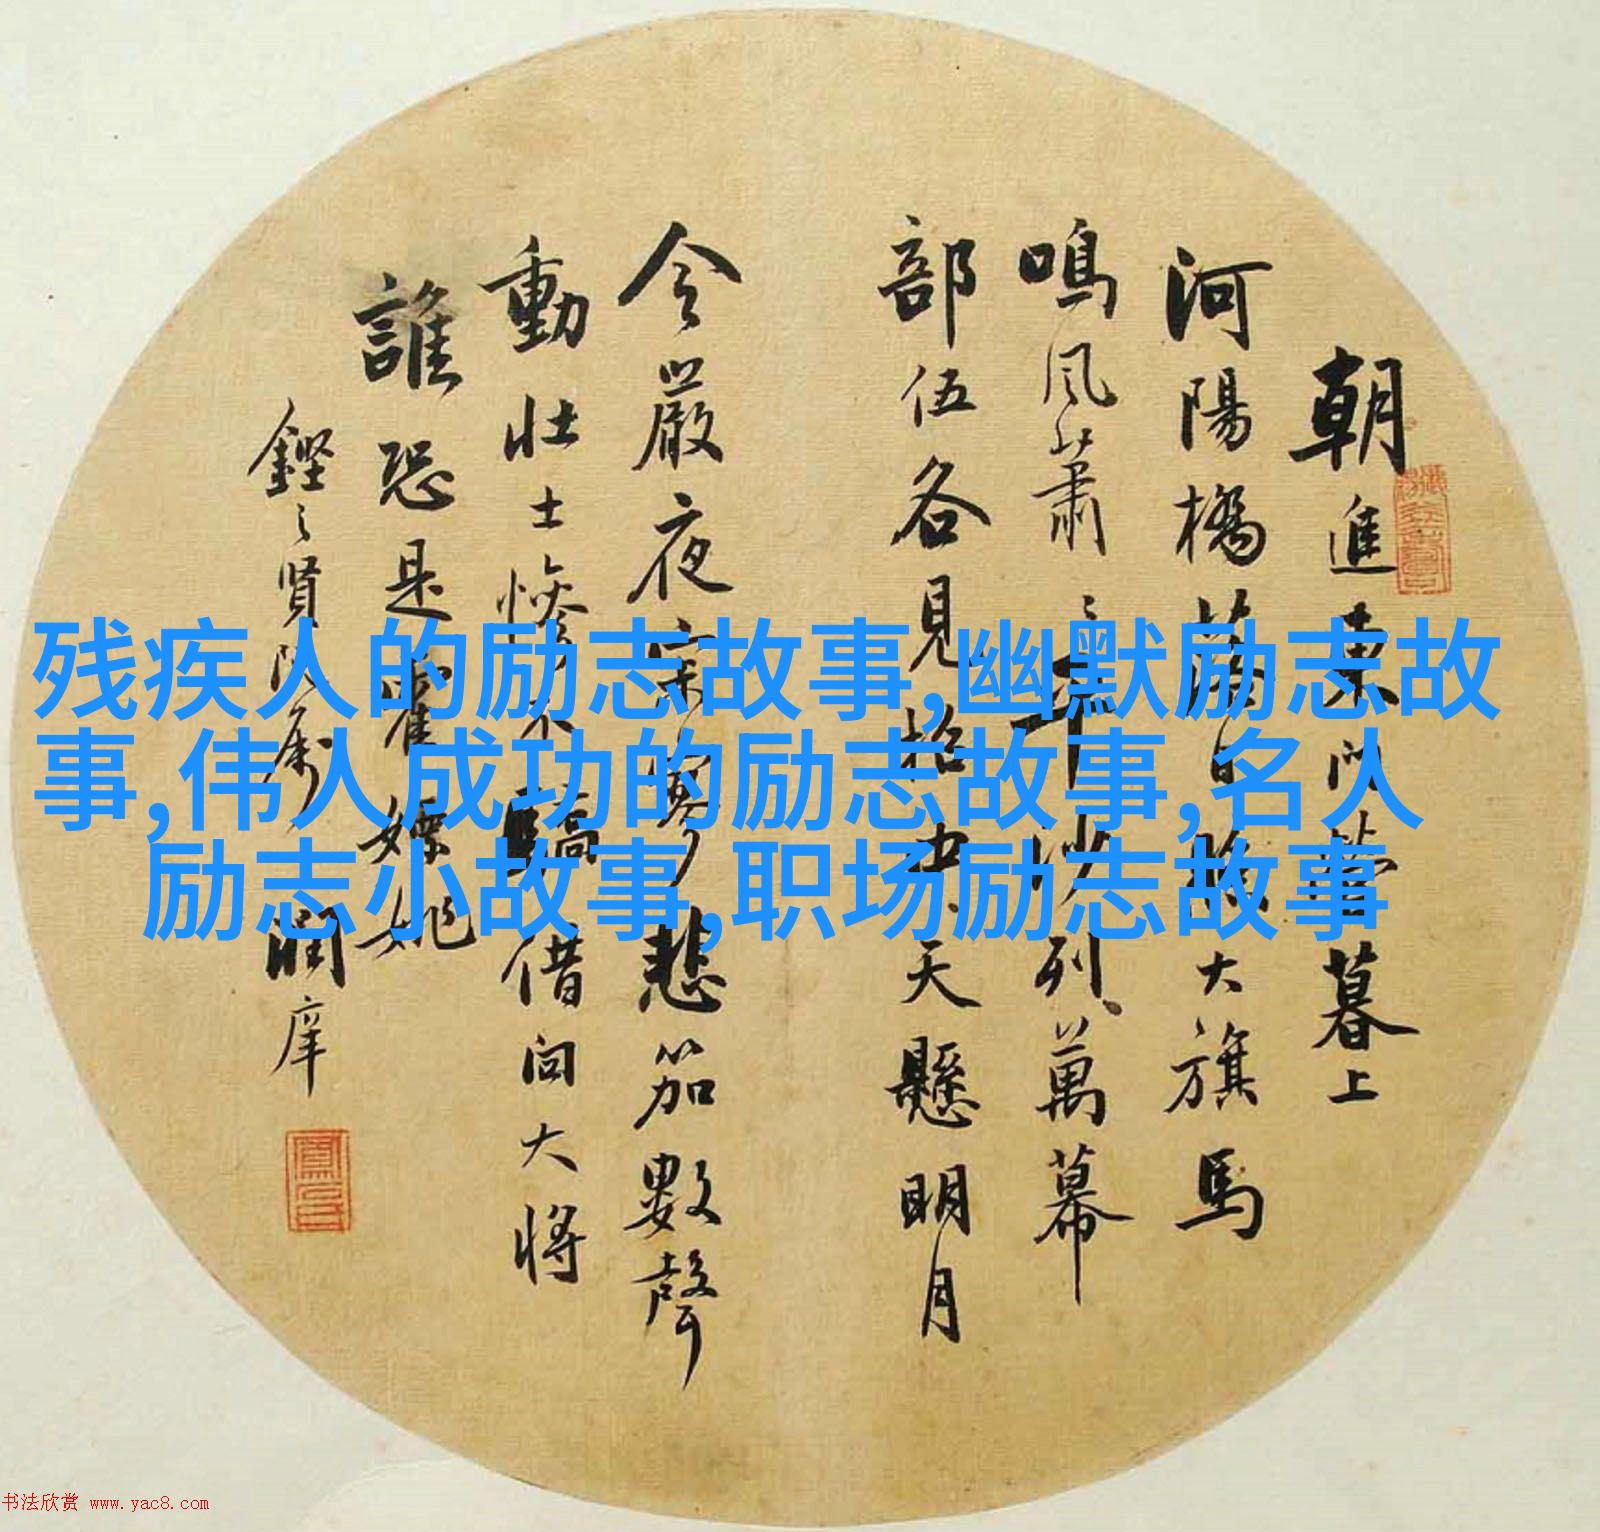 朝進東門營暮上
河陽橋落日照大旗馬
鳴風蕭〻平沙列萬幕
部伍各見招中天懸明月
令嚴夜寂寥悲笳數聲
動壯士慘不驕借問大將
誰恐是霍嫖姚
賢阮屬 潤庠
残疾人的励志故事,幽默励志故
事,伟人成功的励志故事,名人
励志小故事,职场励志故事
书法欣赏 www.yac8.com